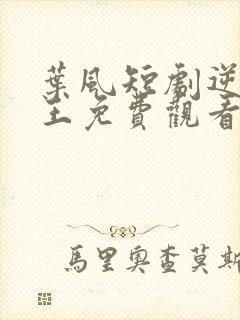 葉風短劇逆
土免費觀看
馬里奧查莫斯